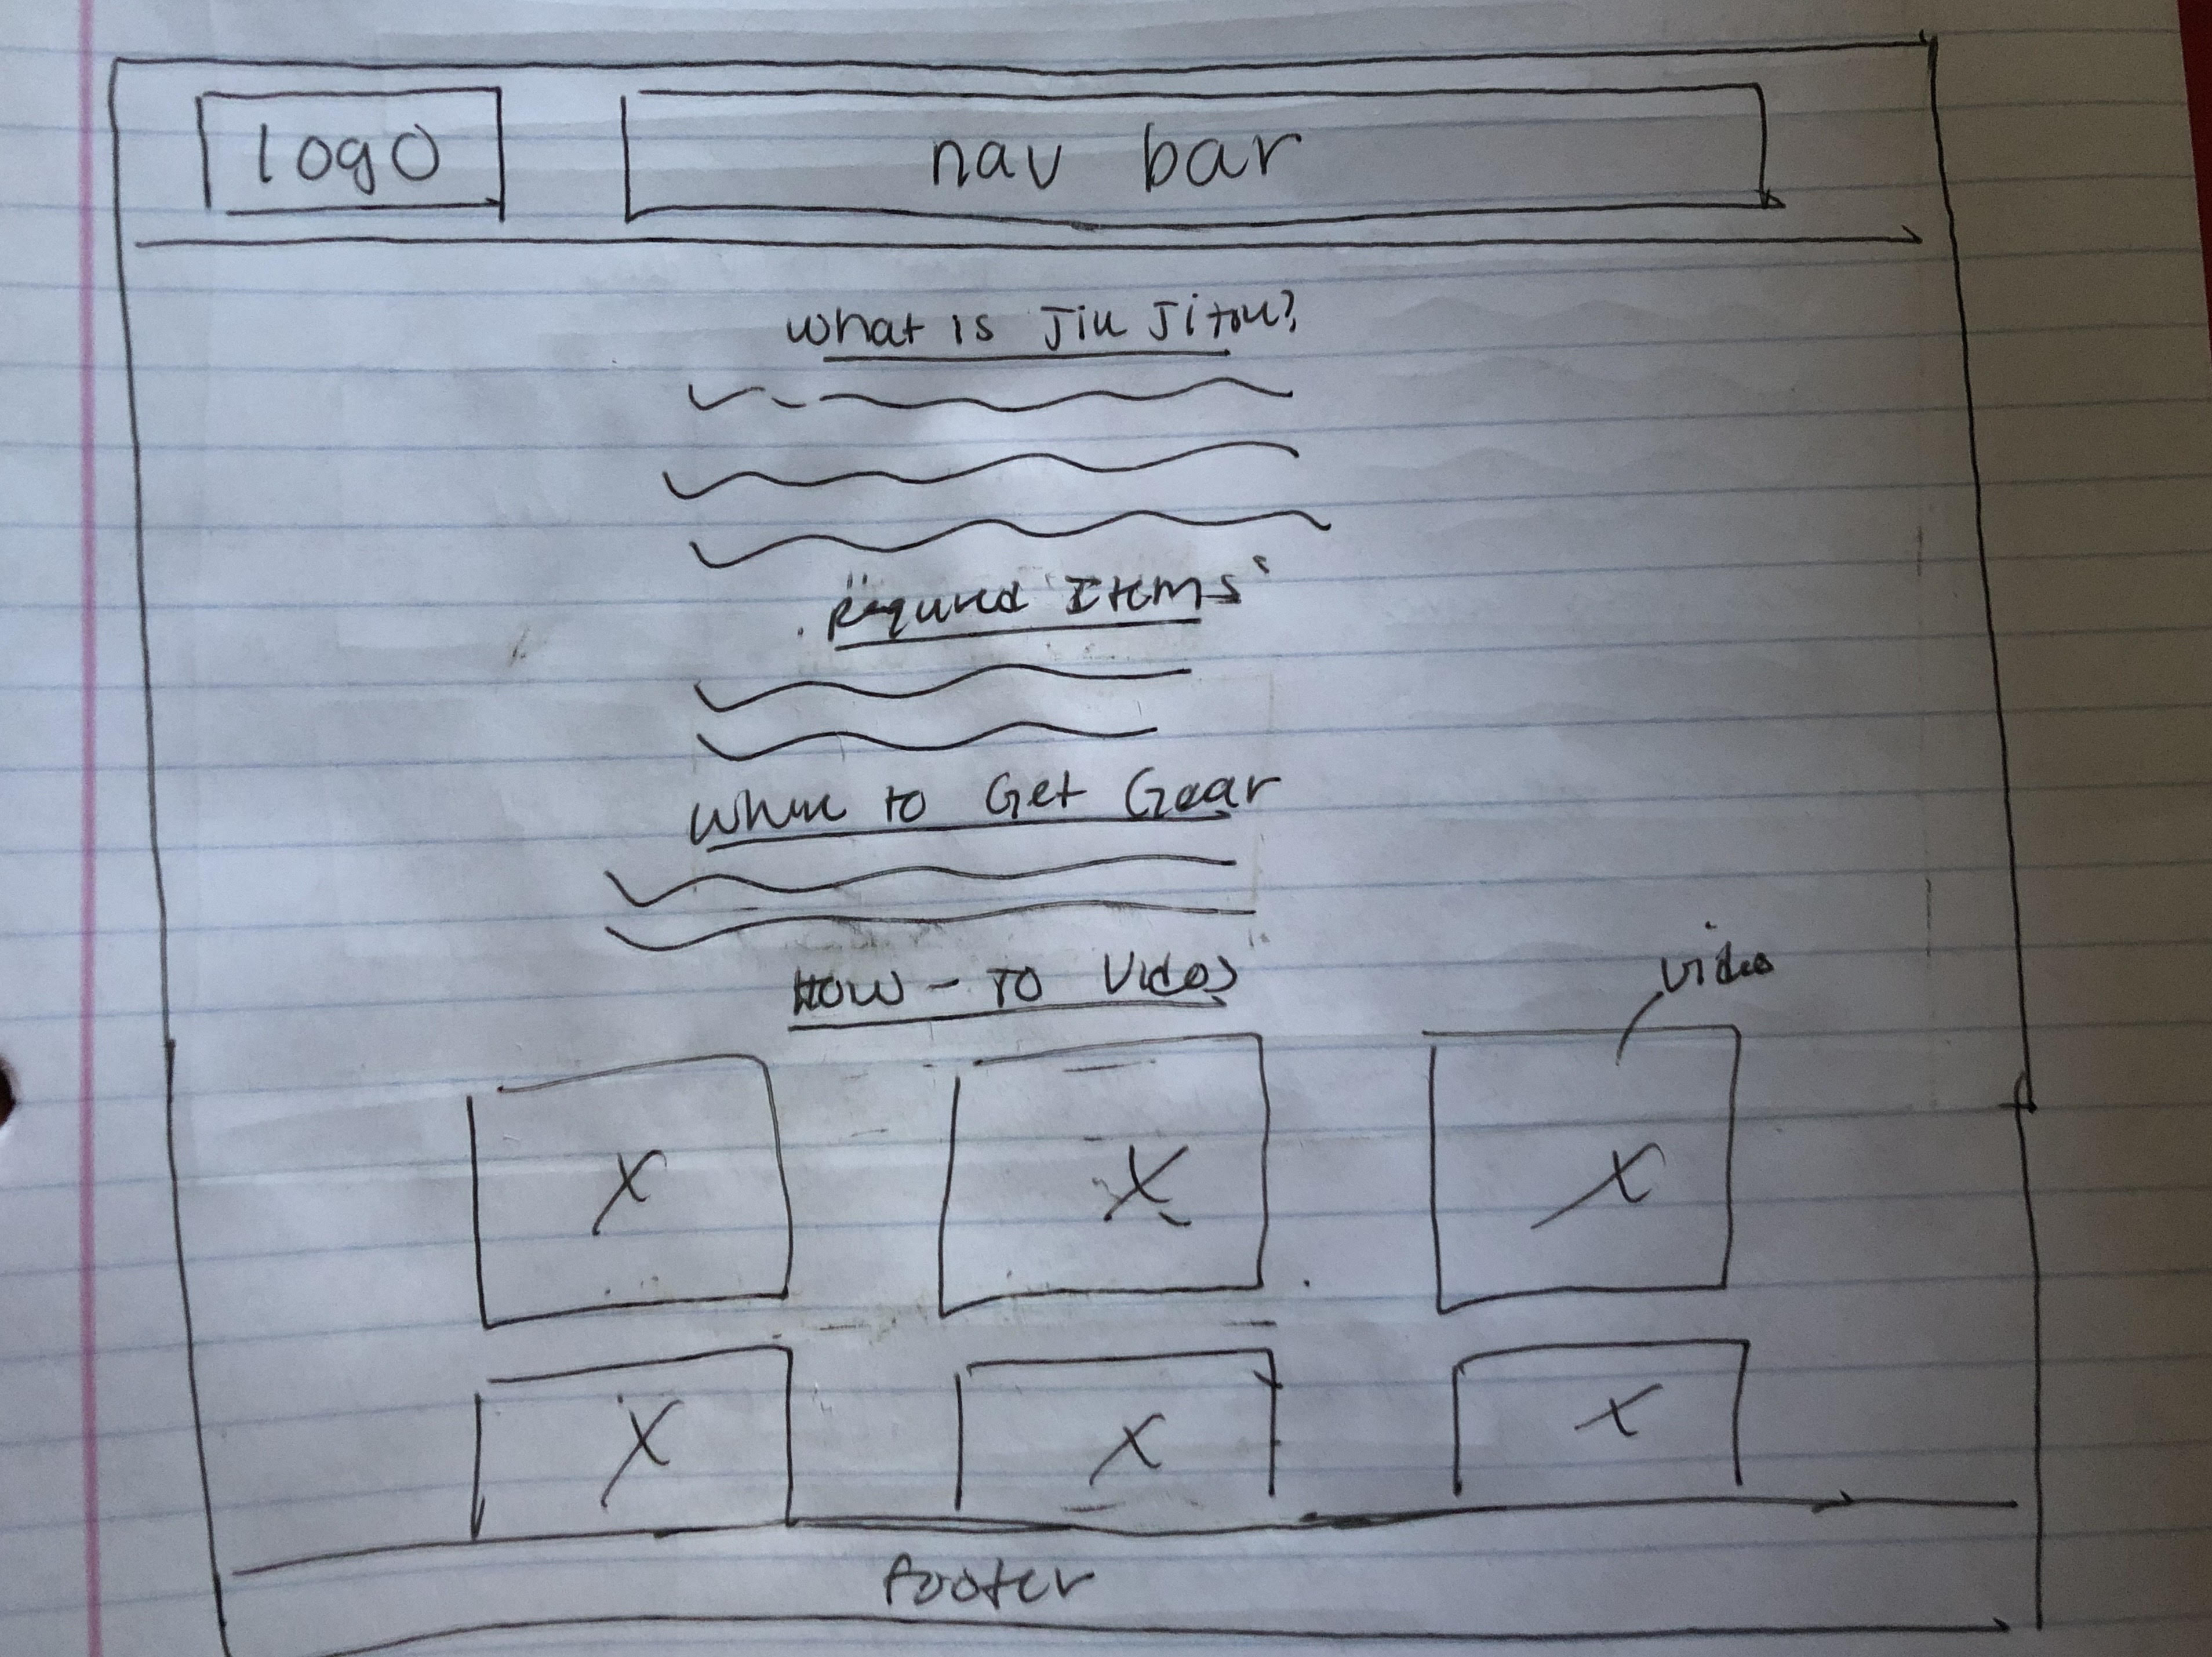 logo
nav bar
What is Jiu Jitsu?
"Required Items"
to Get Gear
How - To Videos
video
X X X
X X X
footer